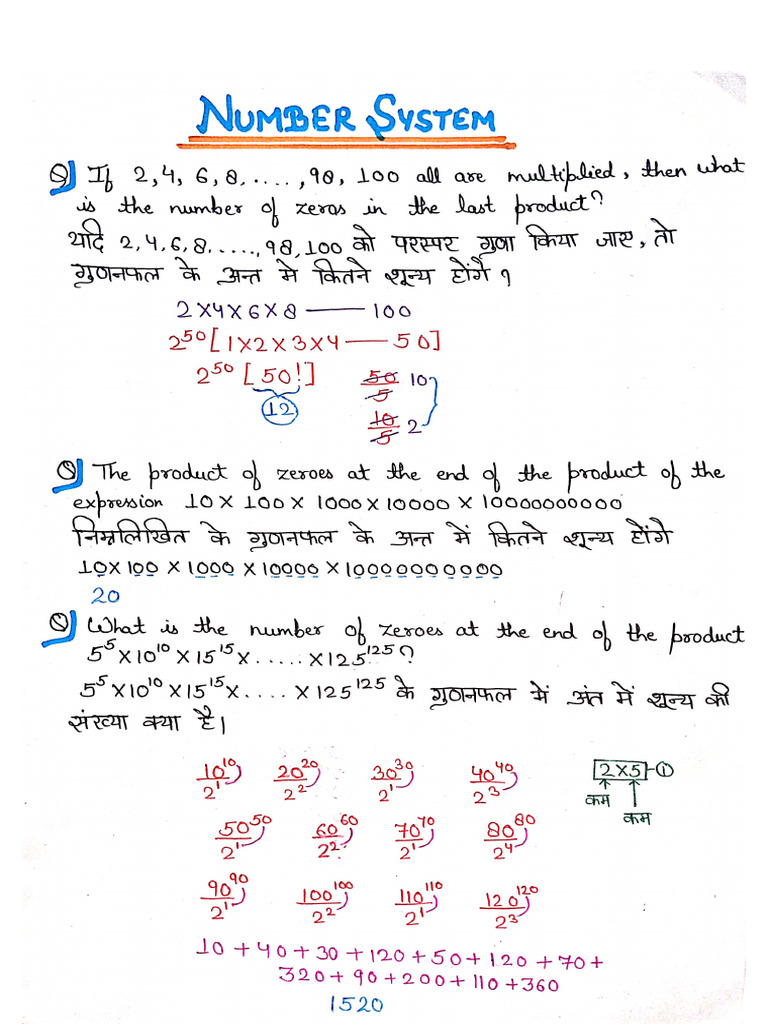 NUMBER SYSTEM
Q) If 2,4,6,8,....,98,100 all are multiplied, then what
is the number of zeros in the last product?
यदि 2,4,6,8,....,98,100 को परस्पर गुणा किया जाए, तो
गुणनफल के अन्त मे कितने शून्य होंगे ?
2×4×6×8 —— 100
2⁵⁰[1×2×3×4 —— 50]
2⁵⁰ [50!] 50/5 10
12 10/5 2
Q) The product of zeroes at the end of the product of the
expression 10 × 100 × 1000 × 10000 × 10000000000
निम्नलिखित के गुणनफल के अन्त में कितने शून्य होंगे
10×100 ×1000 ×10000 ×10000000000
20
Q) What is the number of zeroes at the end of the product
5⁵×10¹⁰×15¹⁵×.....×125¹²⁵?
5⁵×10¹⁰×15¹⁵×....×125¹²⁵ के गुणनफल में अंत में शून्य की
संख्या क्या है।
10¹⁰/2¹ 20²⁰/2² 30³⁰/2¹ 40⁴⁰/2³ 2×5 -①
कम कम
50⁵⁰/2¹ 60⁶⁰/2² 70⁷⁰/2¹ 80⁸⁰/2⁴
90⁹⁰/2¹ 100¹⁰⁰/2² 110¹¹⁰/2¹ 120¹²⁰/2³
10+40+30+120+50+120+70+
320+90+200+110+360
1520